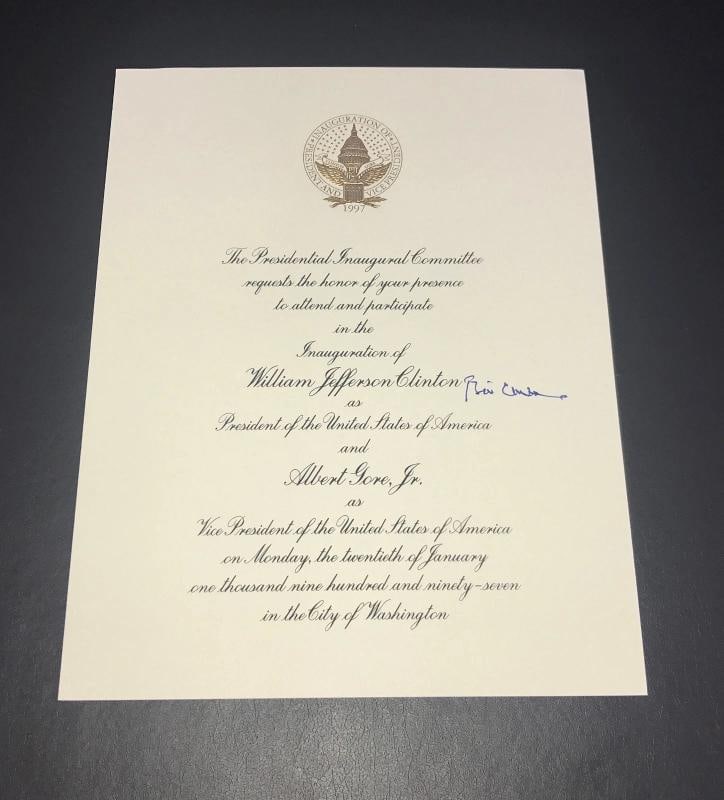 INAUGURATION OF
PRESIDENT AND
VICE PRESIDENT
1997
The Presidential Inaugural Committee
requests the honor of your presence
to attend and participate
in the
Inauguration of
William Jefferson Clinton
Bill Clinton
as
President of the United States of America
and
Albert Gore, Jr.
as
Vice President of the United States of America
on Monday, the twentieth of January
one thousand nine hundred and ninety-seven
in the City of Washington